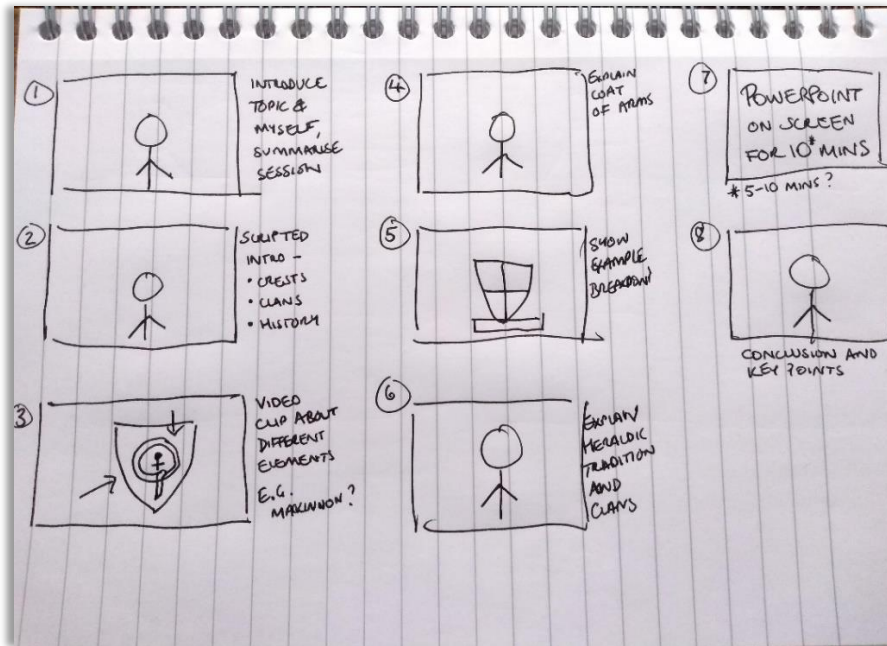 1
INTRODUCE
TOPIC &
MYSELF,
SUMMARISE
SESSION
2
SCRIPTED
INTRO -
• CRESTS
• CLANS
• HISTORY
3
VIDEO
CLIP ABOUT
DIFFERENT
ELEMENTS
E.G.
MAKINNON?
4
EXPLAIN
COAT
OF ARMS
5
SHOW
EXAMPLE
6
EXPLAIN
HERALDIC
TRADITION
AND
CLANS
7
POWERPOINT
ON SCREEN
FOR 10* MINS
* 5-10 MINS?
8
CONCLUSION AND
KEY POINTS